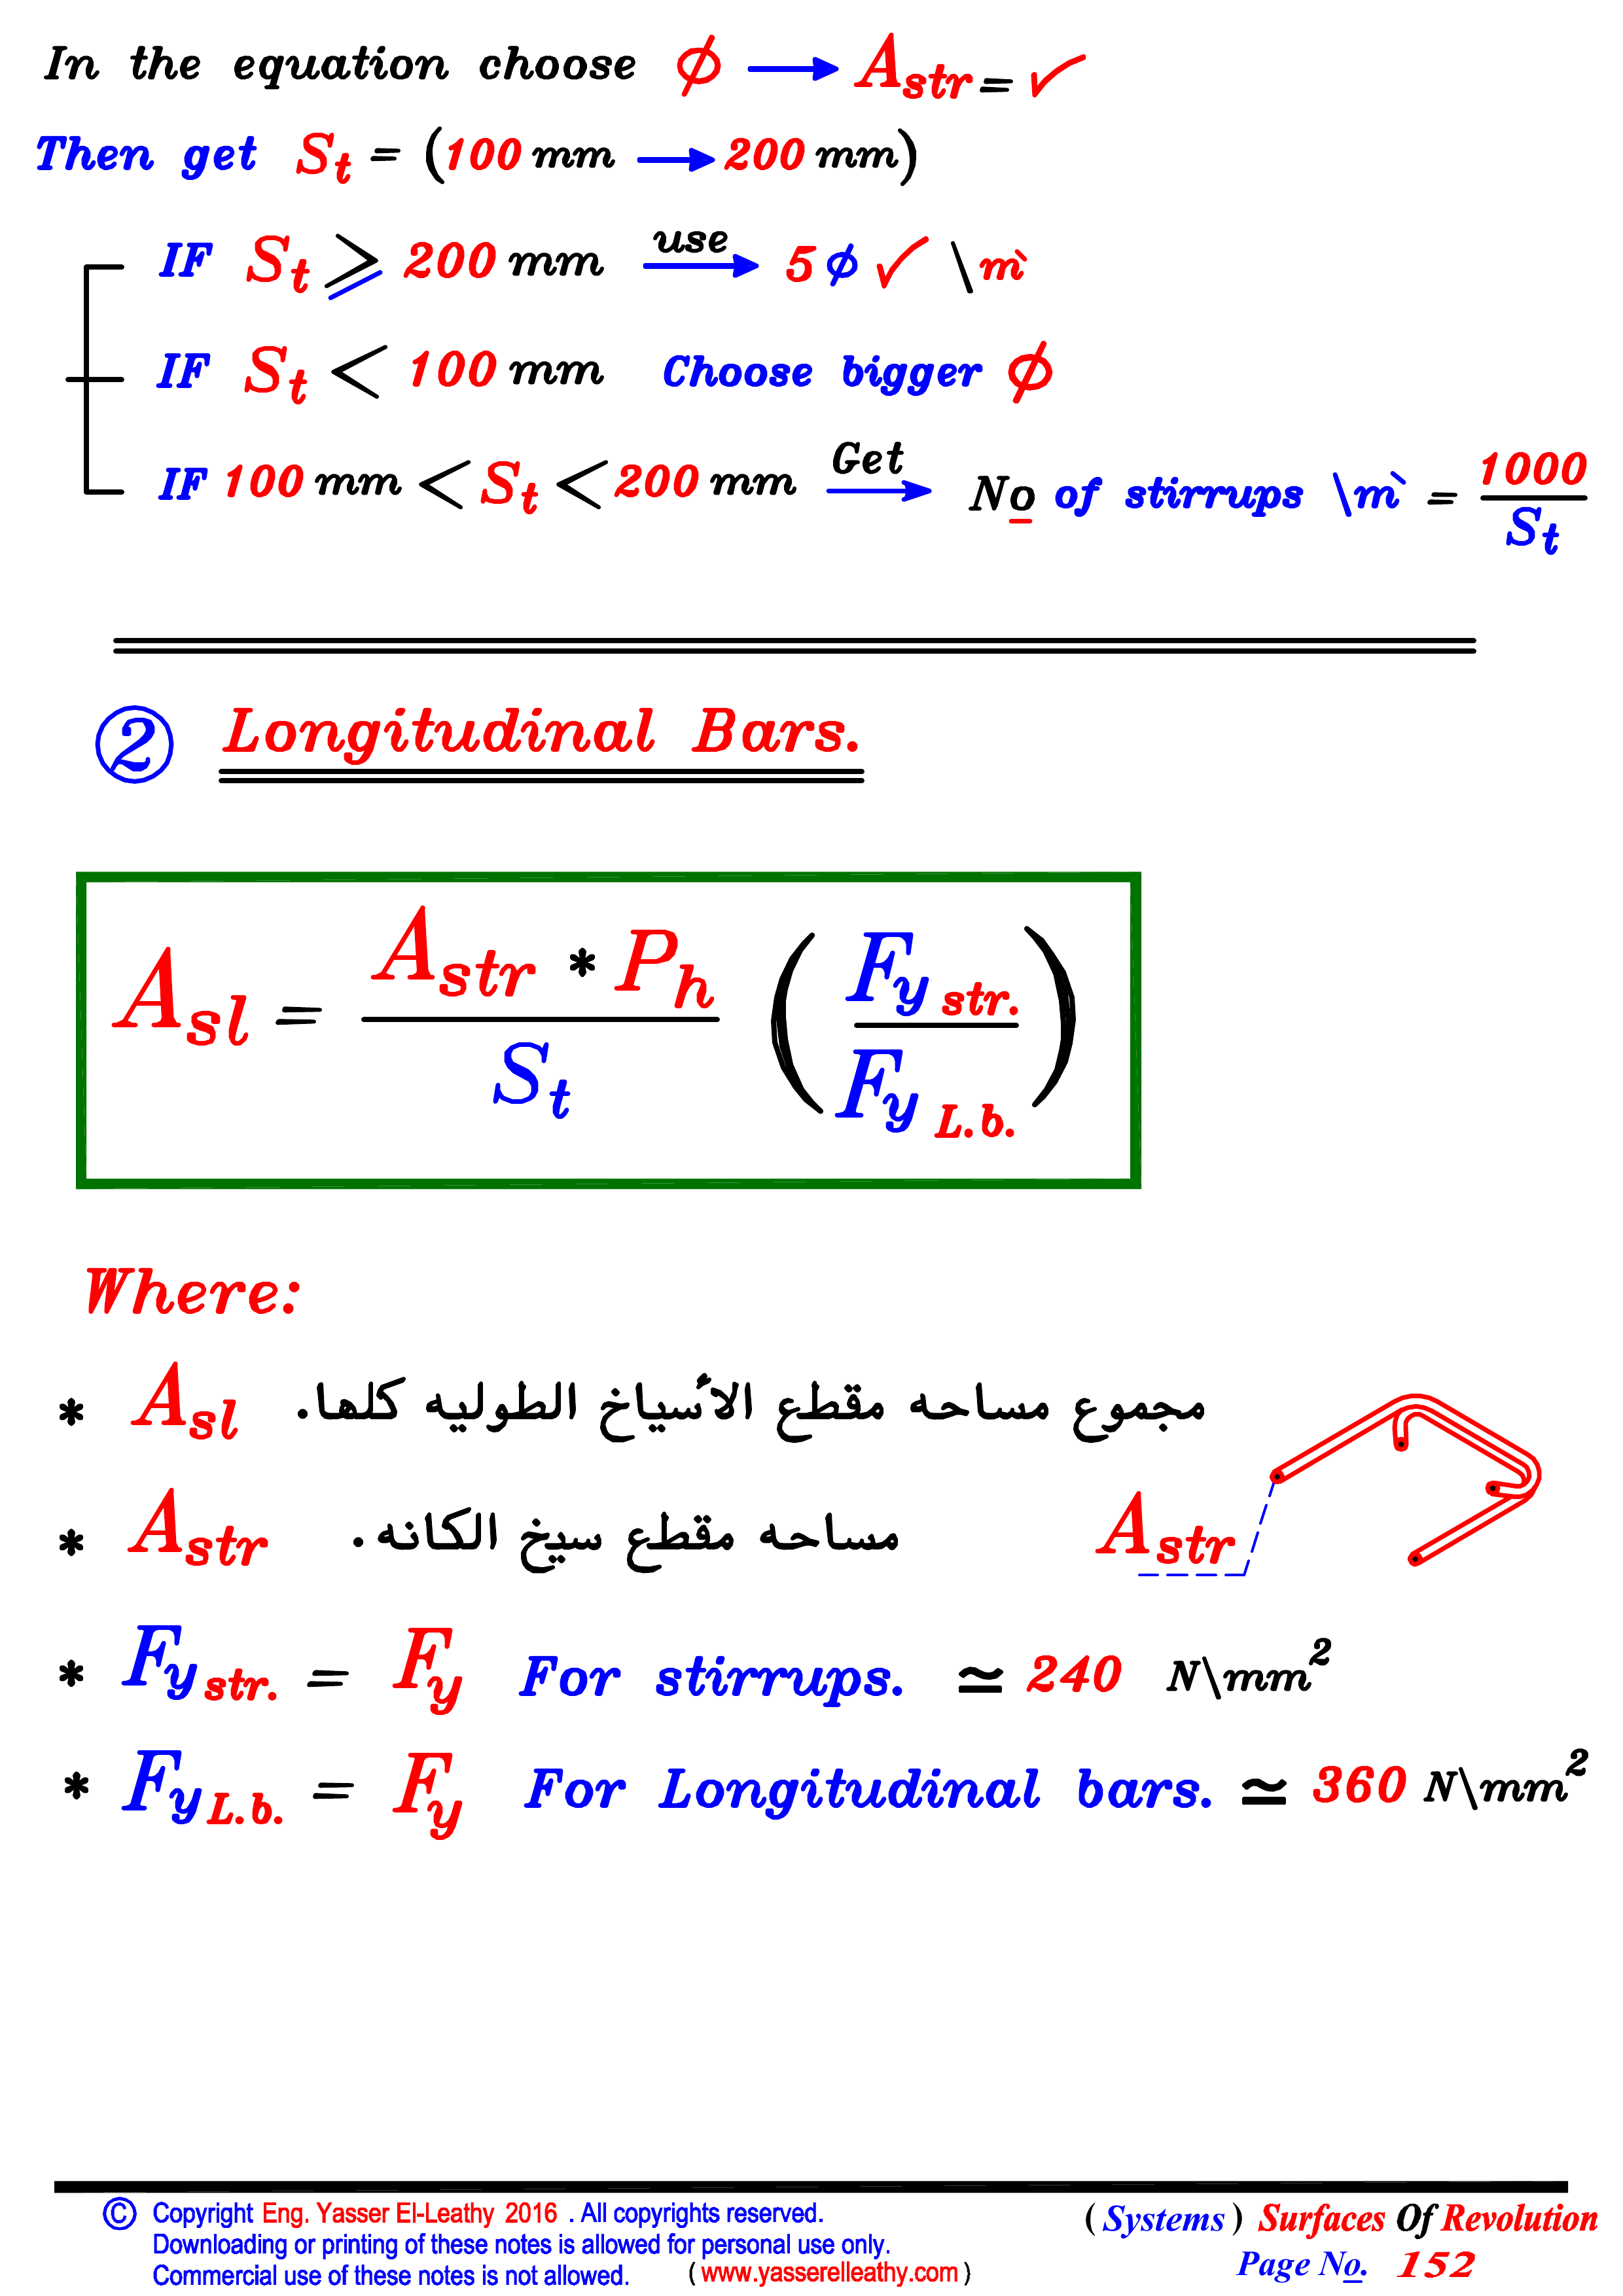 In the equation choose ϕ → Astr = ✓
Then get St = (100 mm → 200 mm)
IF St ⩾ 200 mm use → 5 ϕ ✓ \m`
IF St < 100 mm Choose bigger ϕ
IF 100 mm < St < 200 mm Get → No of stirrups \m` = 1000 / St
2 Longitudinal Bars.
Asl = Astr * Ph / St ( Fy str. / Fy L.b. )
Where:
* Asl مجموع مساحه مقطع الأسياخ الطوليه كلها.
* Astr مساحه مقطع سيخ الكانه.
Astr
* Fy str. = Fy For stirrups. ≃ 240 N\mm²
* Fy L.b. = Fy For Longitudinal bars. ≃ 360 N\mm²
© Copyright Eng. Yasser El-Leathy 2016 . All copyrights reserved.
Downloading or printing of these notes is allowed for personal use only.
Commercial use of these notes is not allowed. ( www.yasserelleathy.com )
( Systems ) Surfaces Of Revolution
Page No. 152